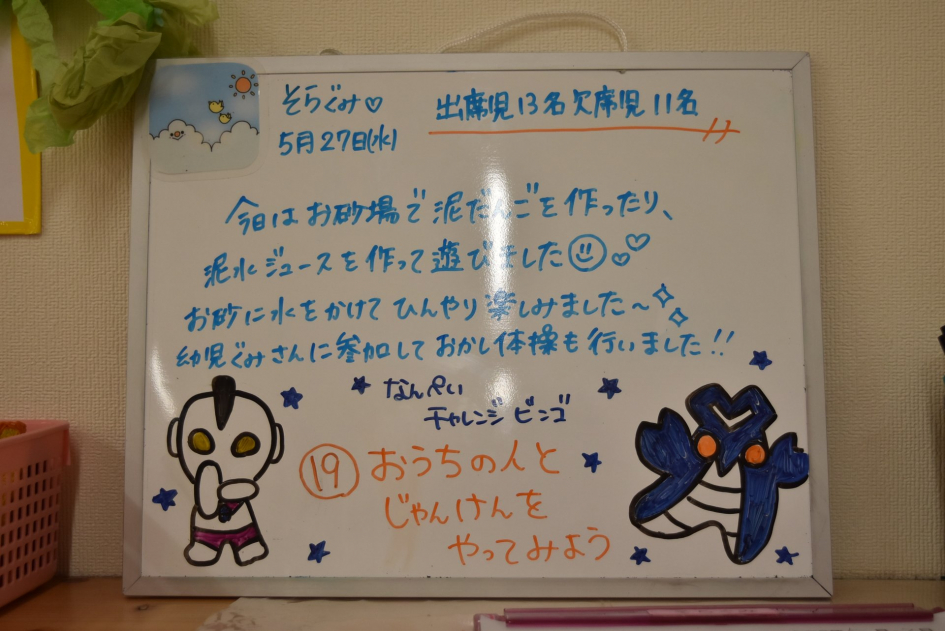 そらぐみ♡
5月27日(水)
出席児13名欠席児11名
今日はお砂場で泥だんごを作ったり、
泥水ジュースを作って遊びました
お砂に水をかけてひんやり楽しみました~
幼児ぐみさんに参加しておかし体操も行いました!!
なんぺい
チャレンジビンゴ
19 おうちの人と
じゃんけんを
やってみよう